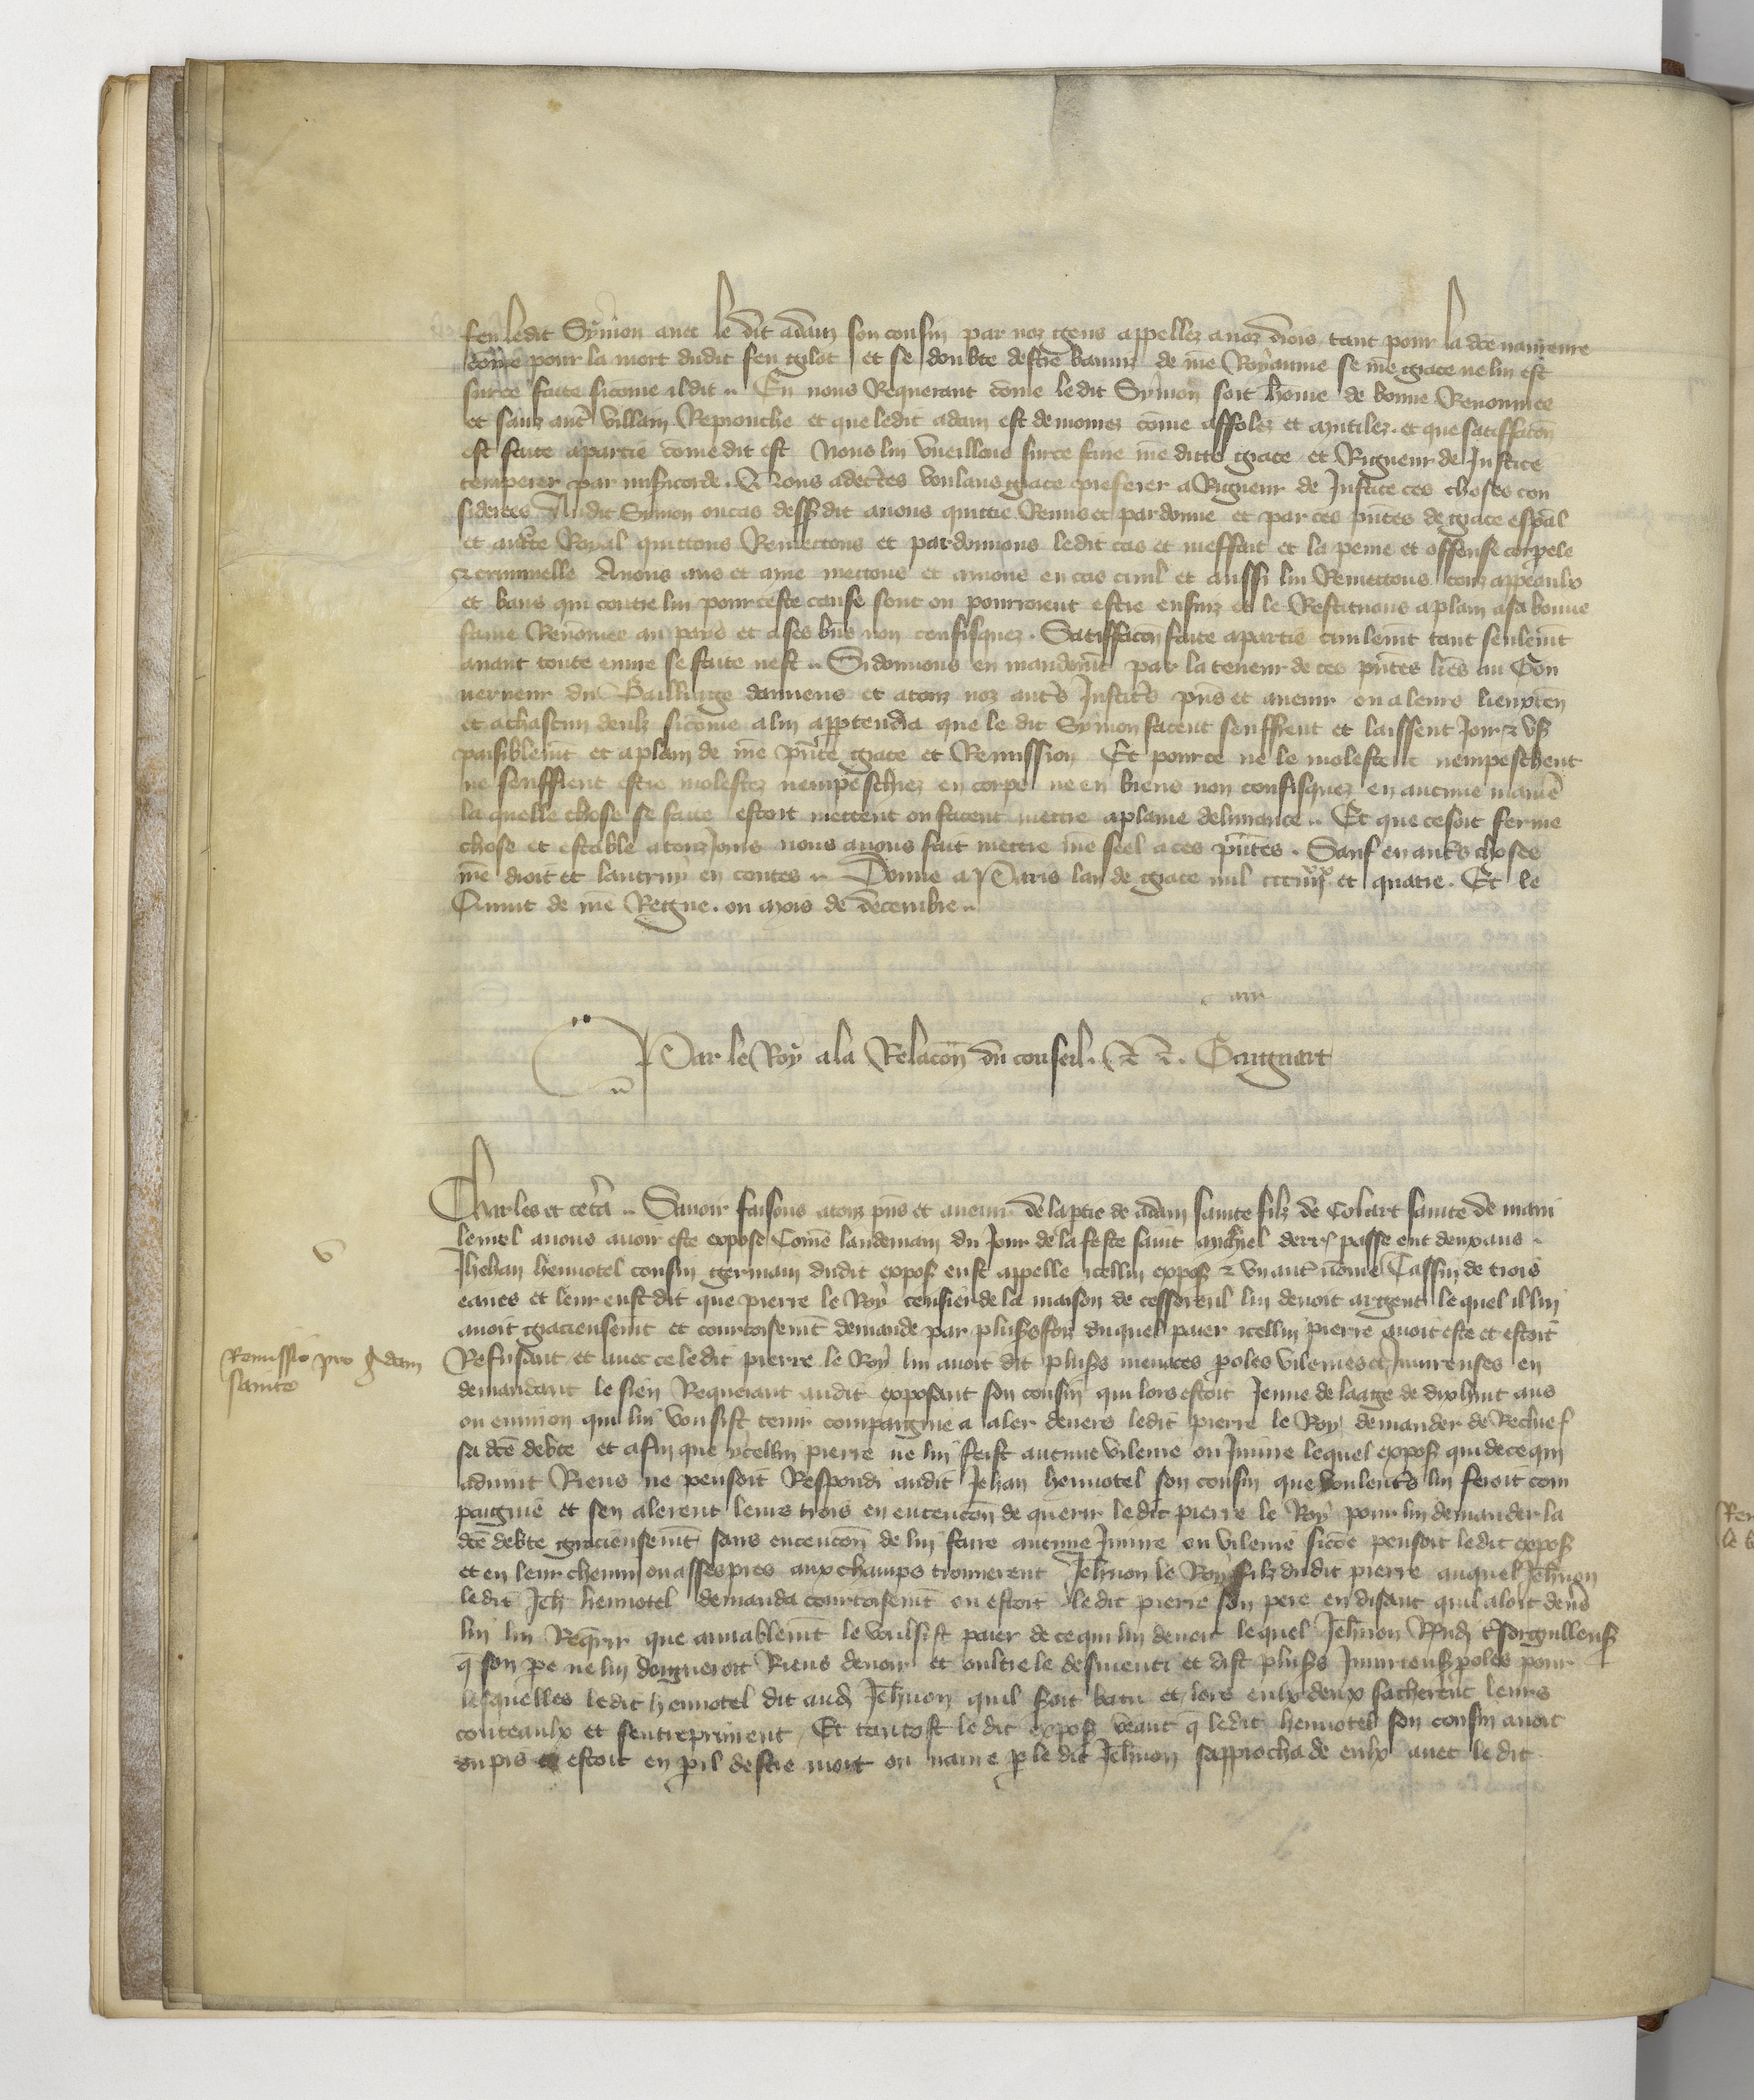 feu ledit Symon avec le dit adam son cousin par noz gens appellez a noz drois tant pour la dce navreure
come pour la mort dudit feu gilot et se doubte destre banniz de nre Royaume se nre grace ne lui est
sur ce faite sicome il dit .. En nous Requerant come ledit Symon soit home de bonne Renommee
et sanz autre villain Reprouche et que ledit adam est demourez come affolez et mutilez. et que satisfacon
est faite a partie come dit est Nous lui vueillons sur ce faire nre dicte grace et Rigueur de Justice
temperer par misericorde. Nous adecertes voulans grace preferer a Rigueur de Justice ces choses con
siderees Audit Symon ou cas dessusdit avons quittie Remis et pardonne et par ces pntes de grace espal
et aucte Royal quittons Remectons et pardonnons ledit cas et meffait et la peine et offense corpele
et criminelle Avons mis et mue mectons et muons en cas civil et aussi lui Remectons touz appeaulx
et bans qui contre lui pour ceste cause sont ou pourroient estre ensuiz et le Restituons a plain a sa bonne
fame Renomee au pays et a ses biens non confisquez. Satisfacon faite a partie civilemt tant seulemt
avant toute euvre se faite nest .. Si donnons en mandemt par la teneur de ces pntes lres au Gou
verneur du Bailliage damiens et a touz noz autres Justiciers pns et avenir ou a leurs lieuxten
et a chascun deulx sicome a lui appartendra que le dit Symon facent seuffrent et laissent Joir & us
paisiblemt et a plain de nre pnte grace et Remission Et pour ce ne le molestent nempeschent
ne seuffrent estre molestez nempeschiez en corps ne en biens non confisquez en aucune manie
la quelle chose se faite estoit mettent ou facent mettre a plaine delivrance .. Et que ce soit ferme
chose et estable a touzjours nous avons fait mettre nre seel a ces pntes. Sauf en autres choses
nre droit et lautruy en toutes .. Donne a Paris lan de grace mil ccciiijxx et quatre. Et le
Quint de nre Regne. ou mois de decembre ..
Par le Roy a la Relacon du conseil.
Charles et cetera .. Savoir faisons a touz pns et avenir de la ptie de adam sainte filz de Colart sainte de mari
lemel avons avoir este expose Come landemain du Jour de la feste saint michiel derr passe ent deux ans .
Jhehan hennotel cousin germain dudit expos eust appelle icellui expos & un autre nome Tassin de trois
eaues et leur eust dit que pierre le Roy censier de la maison de cessoreul lui devoit argent le quel il lui
avoit gracieusemt et courtoisemt demande par plusrs fois duquel paier icellui pierre avoit este et estoit
Remissio pro adam
sainte
Refusant et avec ce ledit pierre le Roy lui avoit dit plusrs menaces poles vilennes et Injurieuses en
demandant le sien Requerant audit exposant son cousin qui lors estoit Jeune de laage de dixhuit ans
ou environ qui lui voulsist tenir compaignie a aler devers ledit pierre le Roy demander de Rechief
sa dce debte et afin que ycellui pierre ne lui feist aucune vilenie ou Injure lequel expos qui de ce qui
advint Riens ne pensoit Respondi audit Jehan hennotel son cousin que voulentrs lui feroit com
paignie et sen alerent leurs trois en entencon de querir ledit pierre le Roy pour lui demander la
dce debte gracieusemt sans entencon de lui faire aucune Injure ou vilenie sicoe pensoit ledit expos
et en leur chemin ou asses pres aux champs trouverent Jehnon le Roy filz dudit pierre auquel Jehnon
ledit Jeh hennotel demanda courtoisemt ou estoit ledit pierre son pere en disant quil aloit devs
lui lui Reqrir que amiablemt le voulsist paier de ce qui lui devoit lequel Jehnon Rndi tsorguilleus
q son pe ne lui dongneroit Riens devoir et oultre le desmenti et dist plusrs Injurieus poles pour
lesquelles ledit hennotel dit aud Jehnon quil seroit batu et lors eulx deux sacherent leurs
couteaulx et sentreprinrent Et tantost ledit expos veant q ledit hennotel son cousin avoit
du pis et estoit en pil destre mort ou navre p le dit Jehnon sapprocha de eulx avec le dit